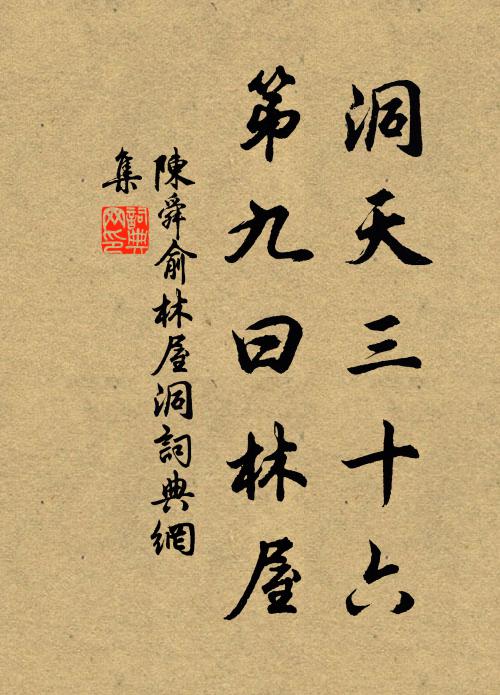 洞天三十六
第九曰林屋
陳舜俞林屋洞詞典網
集
詞典网印